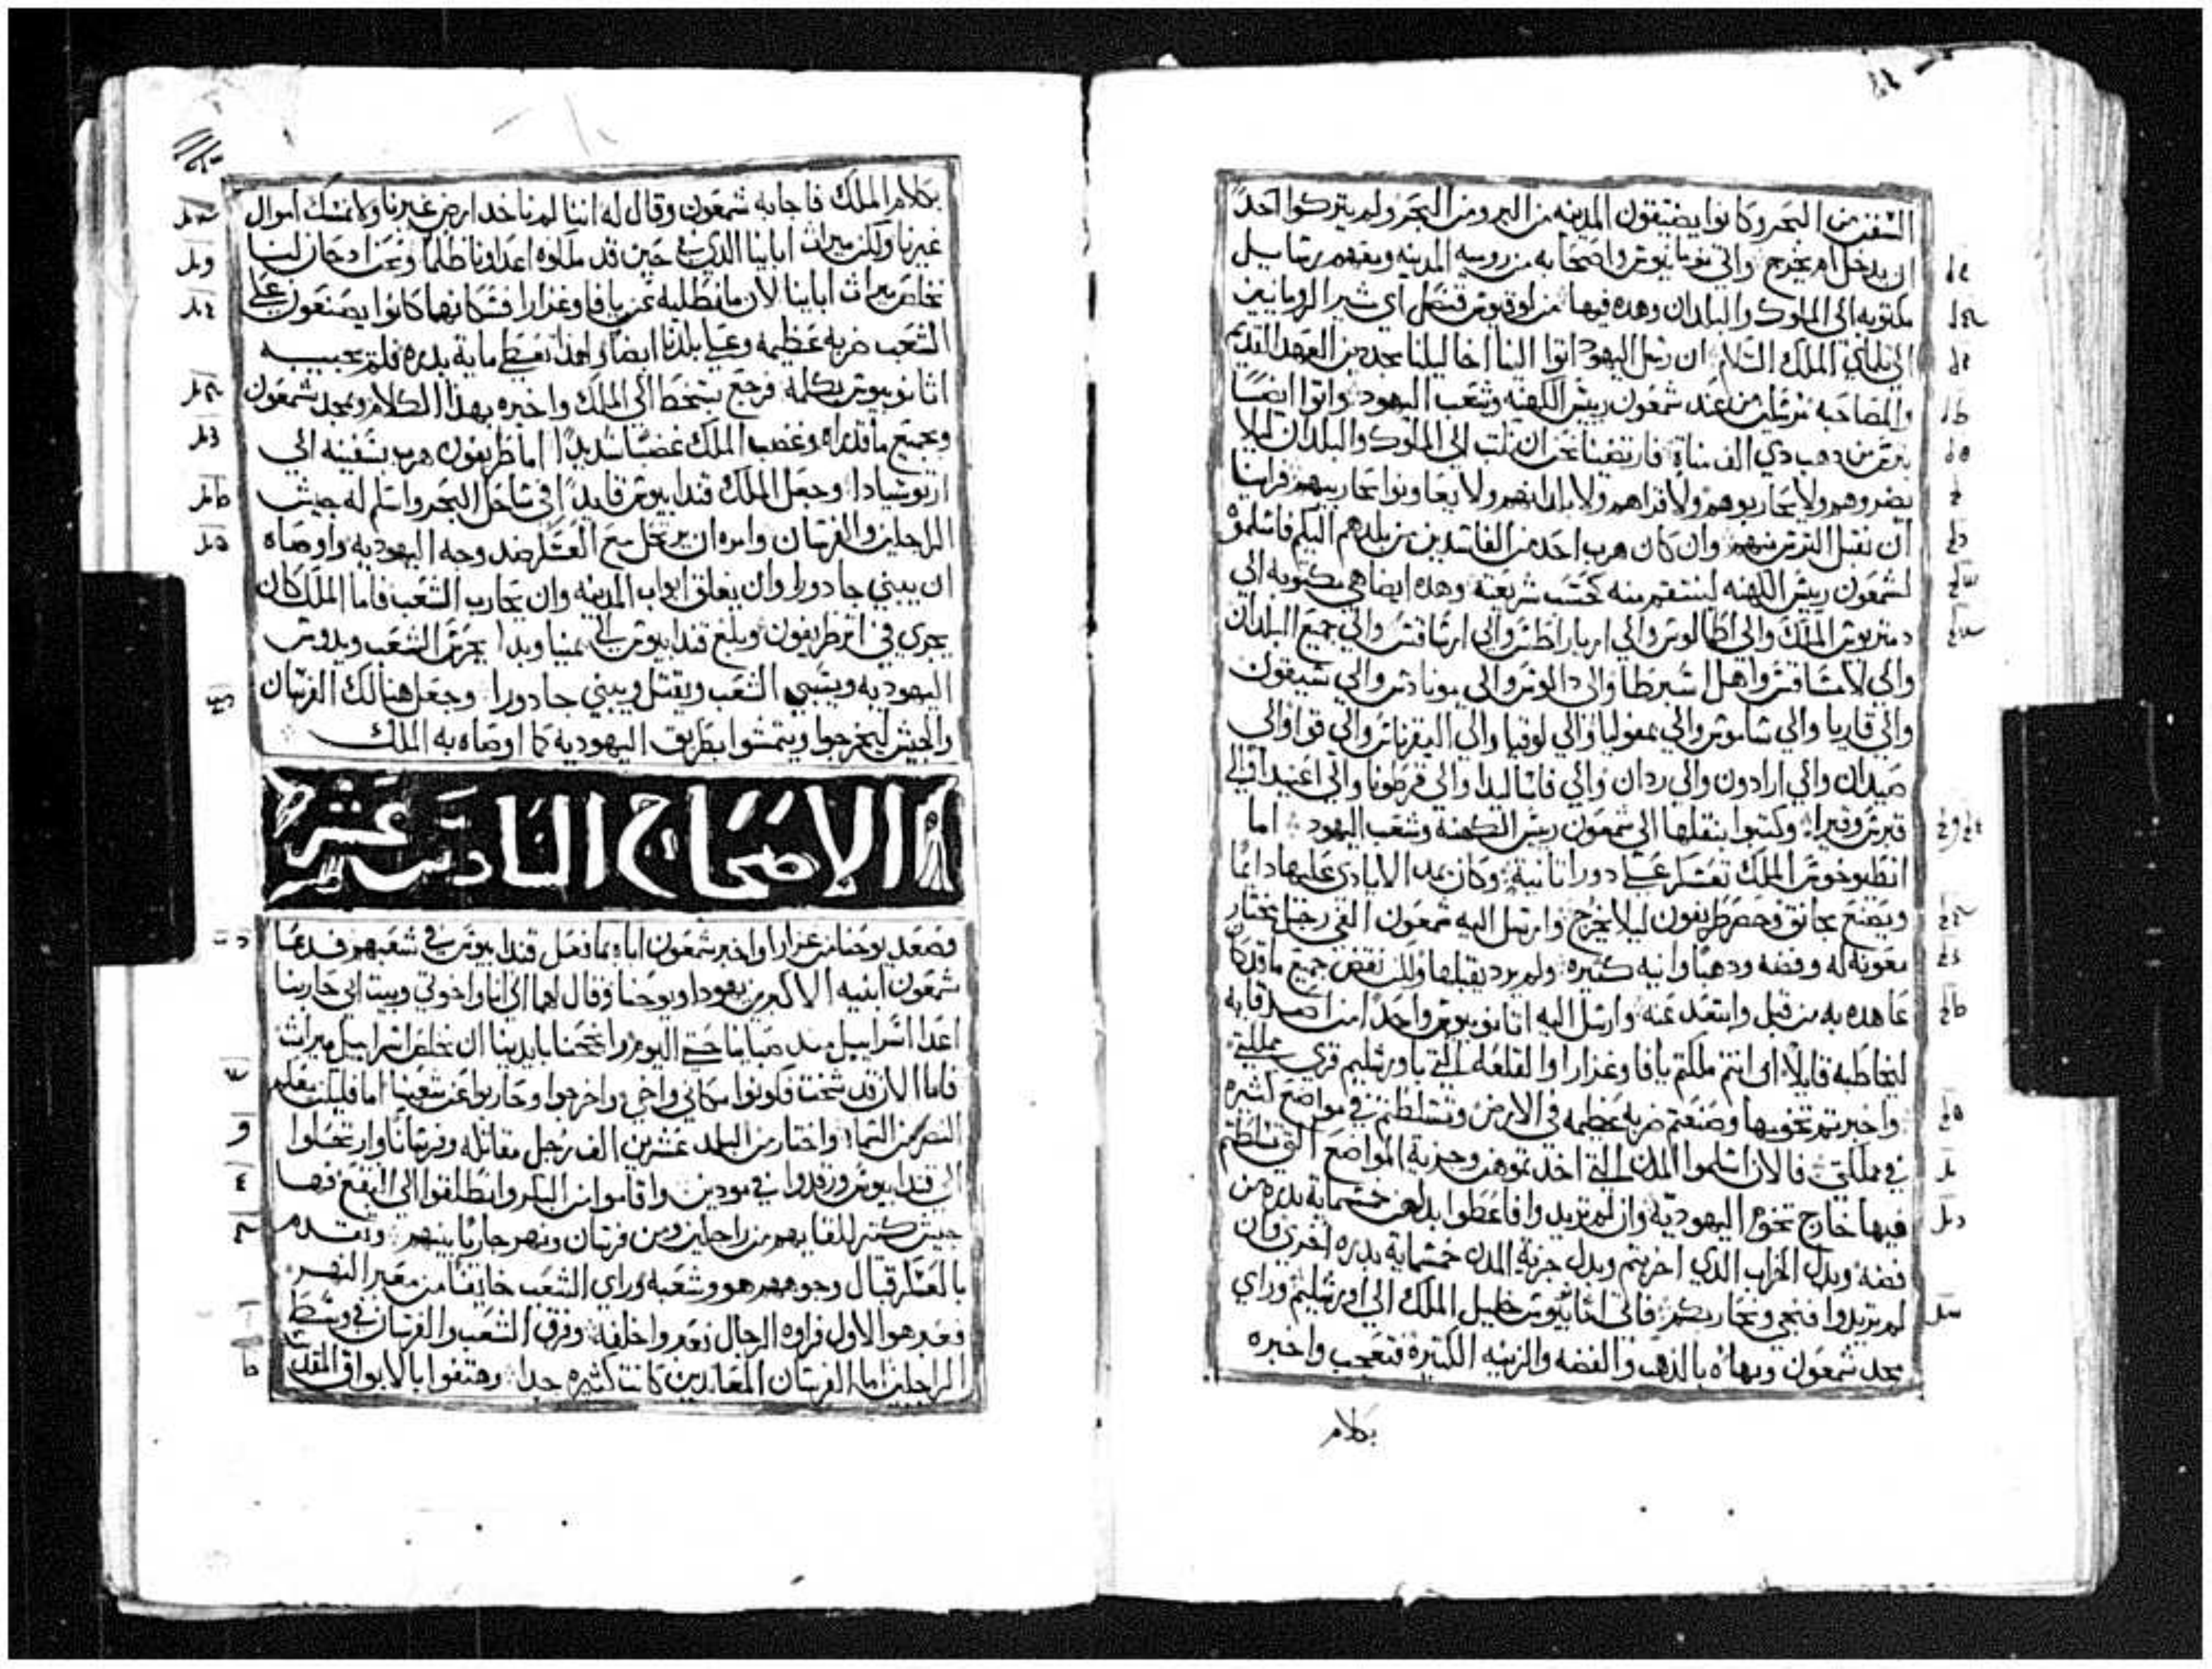 السفن من البحر وكانوا يضيقون المدينه من البر ومن البحر ولم يتركوا احدًا
ان يدخل او يخرج واتي نومانيوس واصحابه من روميه المدينه ومعهم رسايل
مكتوبه الي الملوك والبلدان وهده فيها من لوقيوس قنصل اي شير الرومانيين
الي تلماي الملك السلام ان رسل اليهود اتوا الينا اخاليلنا مجددين العهد القديم
والمصاحبه مرسلين من عند شمعون رييس الكهنه وشعب اليهود واتوا ايضًا
بترس من دهب دي الف مناة فارتضينا نحن ان نكتب الي الملوك والبلدان ليلا
يضروهم ولا يحاربوهم ولا قراهم ولا بلدانهم ولا يعاونوا محاربيهم فراينا
ان نقبل الترس منهم وان كان هرب احد من الفاسدين من بلدهم اليكم فاسلموه
لشمعون رييس الكهنه لينتقم منه كحسب شريعته وهده ايضا هي مكتوبه الي
دمتريوس الملك والي اطالوس والي ارياراطس والي ارشاقس والي جميع البلدان
والي لامساقس واهل اسبرطا والي دالوس والي مونادس والي سيقون
والي قاريا والي ساموس والي بمفوليا والي لوقيا والي اليقرناس والي قوا والي
صيدان والي ارادون والي ردان والي فاساليدا والي قرطونا والي اغنيدا والي
قبرس وقيرا وكتبوا بنقلها الي شمعون رييس الكهنه وشعب اليهود اما
انطيوخوس الملك تعسكر علي دورا تانيه وكان يمد الايادي عليها دايمًا
ويصنع مجانق وحصر طريفون ليلا يخرج وارسل اليه شمعون الفي رجل مختار
معونه له وفضه ودهبا وانيه كتيره ولم يرد يقبلها ولكن نقض جميع ما قد كان
عاهده به من قبل وابتعد عنه وارسل اليه اتانوبيوس واحدًا من اصدقايه
ليخاطبه قايلًا اي انتم ملكتم يافا وغزارا والقلعه التي باورشليم قري مملكتي
واخربتم تخومها وصنعتم ضربه عظيمه في الارض وتسلطتم في مواضع كتيره
في مملكتي فالان اسلموا المدن التي اخدتموهن وجزية المواضع التي تسلطتم
فيها خارج تخوم اليهوديه وان لم تريدوا فاعطوا بدلهن خمسماية بدره من
فضه وبدل الخراب الدي اخربتم وبدل جزية المدن خمسماية بدره اخري وان
لم تريدوا فنجي ونحاربكم فاتي اتانيوس خليل الملك الي اورشليم وراي
مجد شمعون وبهاه بالدهب والفضه والزينه الكتيرة فتعجب واخبره
بكلام
بكلام الملك فاجابه شمعون وقال له اننا لم ناخد ارض غيرنا ولا نمسك اموال
غيرنا ولكن ميرات ابابنا الدي في حين قد ملكوه اعداونا ظلمًا ونحن اد حان لنا
نخلص ميرات ابابنا لان ما تطلبه عن يافا وغزارا فسكانهما كانوا يصنعون علي
الشعب ضربه عظيمه وعلي بلدنا ايضا ولهدا نعطي ماية بدره فلم يجيبه
اتانوبيوس بكلمه فرجع بسخط الي الملك واخبره بهدا الكلام وبمجد شمعون
وبجميع ما قد راه وغضب الملك غضبًا شديدًا اما طريفون هرب بسفينه الي
ارتوسيادا وجعل الملك قندابيوس قايدًا في ساحل البحر واسلم له جيش
الراجلين والفرسان وامره ان يرتحل مع العسكر ضد وجه اليهوديه واوصاه
ان يبني جادورا وان يغلق ابواب المدينه وان يحارب الشعب فاما الملك كان
يجري في اتر طريفون وبلغ قندابيوس الي يمنيا وبدا يحرش الشعب ويدوس
اليهوديه ويسبي الشعب ويقتل ويبني جادورا وجعل هنالك الفرسان
والجيش ليخرجوا ويتمشوا بطريق اليهوديه كما اوصاه به الملك
الاصحاح السادس عشر
فصعد يوحنا من غزارا واخبر شمعون اباه بما فعل قندابيوس في شعبهم فدعا
شمعون ابنيه الاكبرين يهودا ويوحنا وقال لهما اي انا واخوتي وبيت ابي حاربنا
اعدا اسراييل مند صبانا حتي اليوم وانجحنا بايدينا ان نخلص اسراييل ميرات
فاما الان قد شخت فكونوا مكاني واخي واخرجوا وحاربوا عن شعبنا اما فليكن معكم
النصر من السما واختار من البلد عشرين الف رجل مقاتله وفرسانًا وارتحلوا
الي قندابيوس ورقدوا في مودين وقاموا من الباكر وانطلقوا الي البقع فها
جيش كتير للقايهم من راجلين ومن فرسان ونهر جاريًا بينهم وتقدم
بالعسكر قبال وجوههم هو وشعبه وراي الشعب خايفًا من معبر النهر
فعبر هو الاول فراوه الرجال فعبروا خلفه وفرق الشعب والفرسان في وسط
الراجلين اما الفرسان المعاندين كانت كتيره جدا وهتفوا بالابواق المقدسة